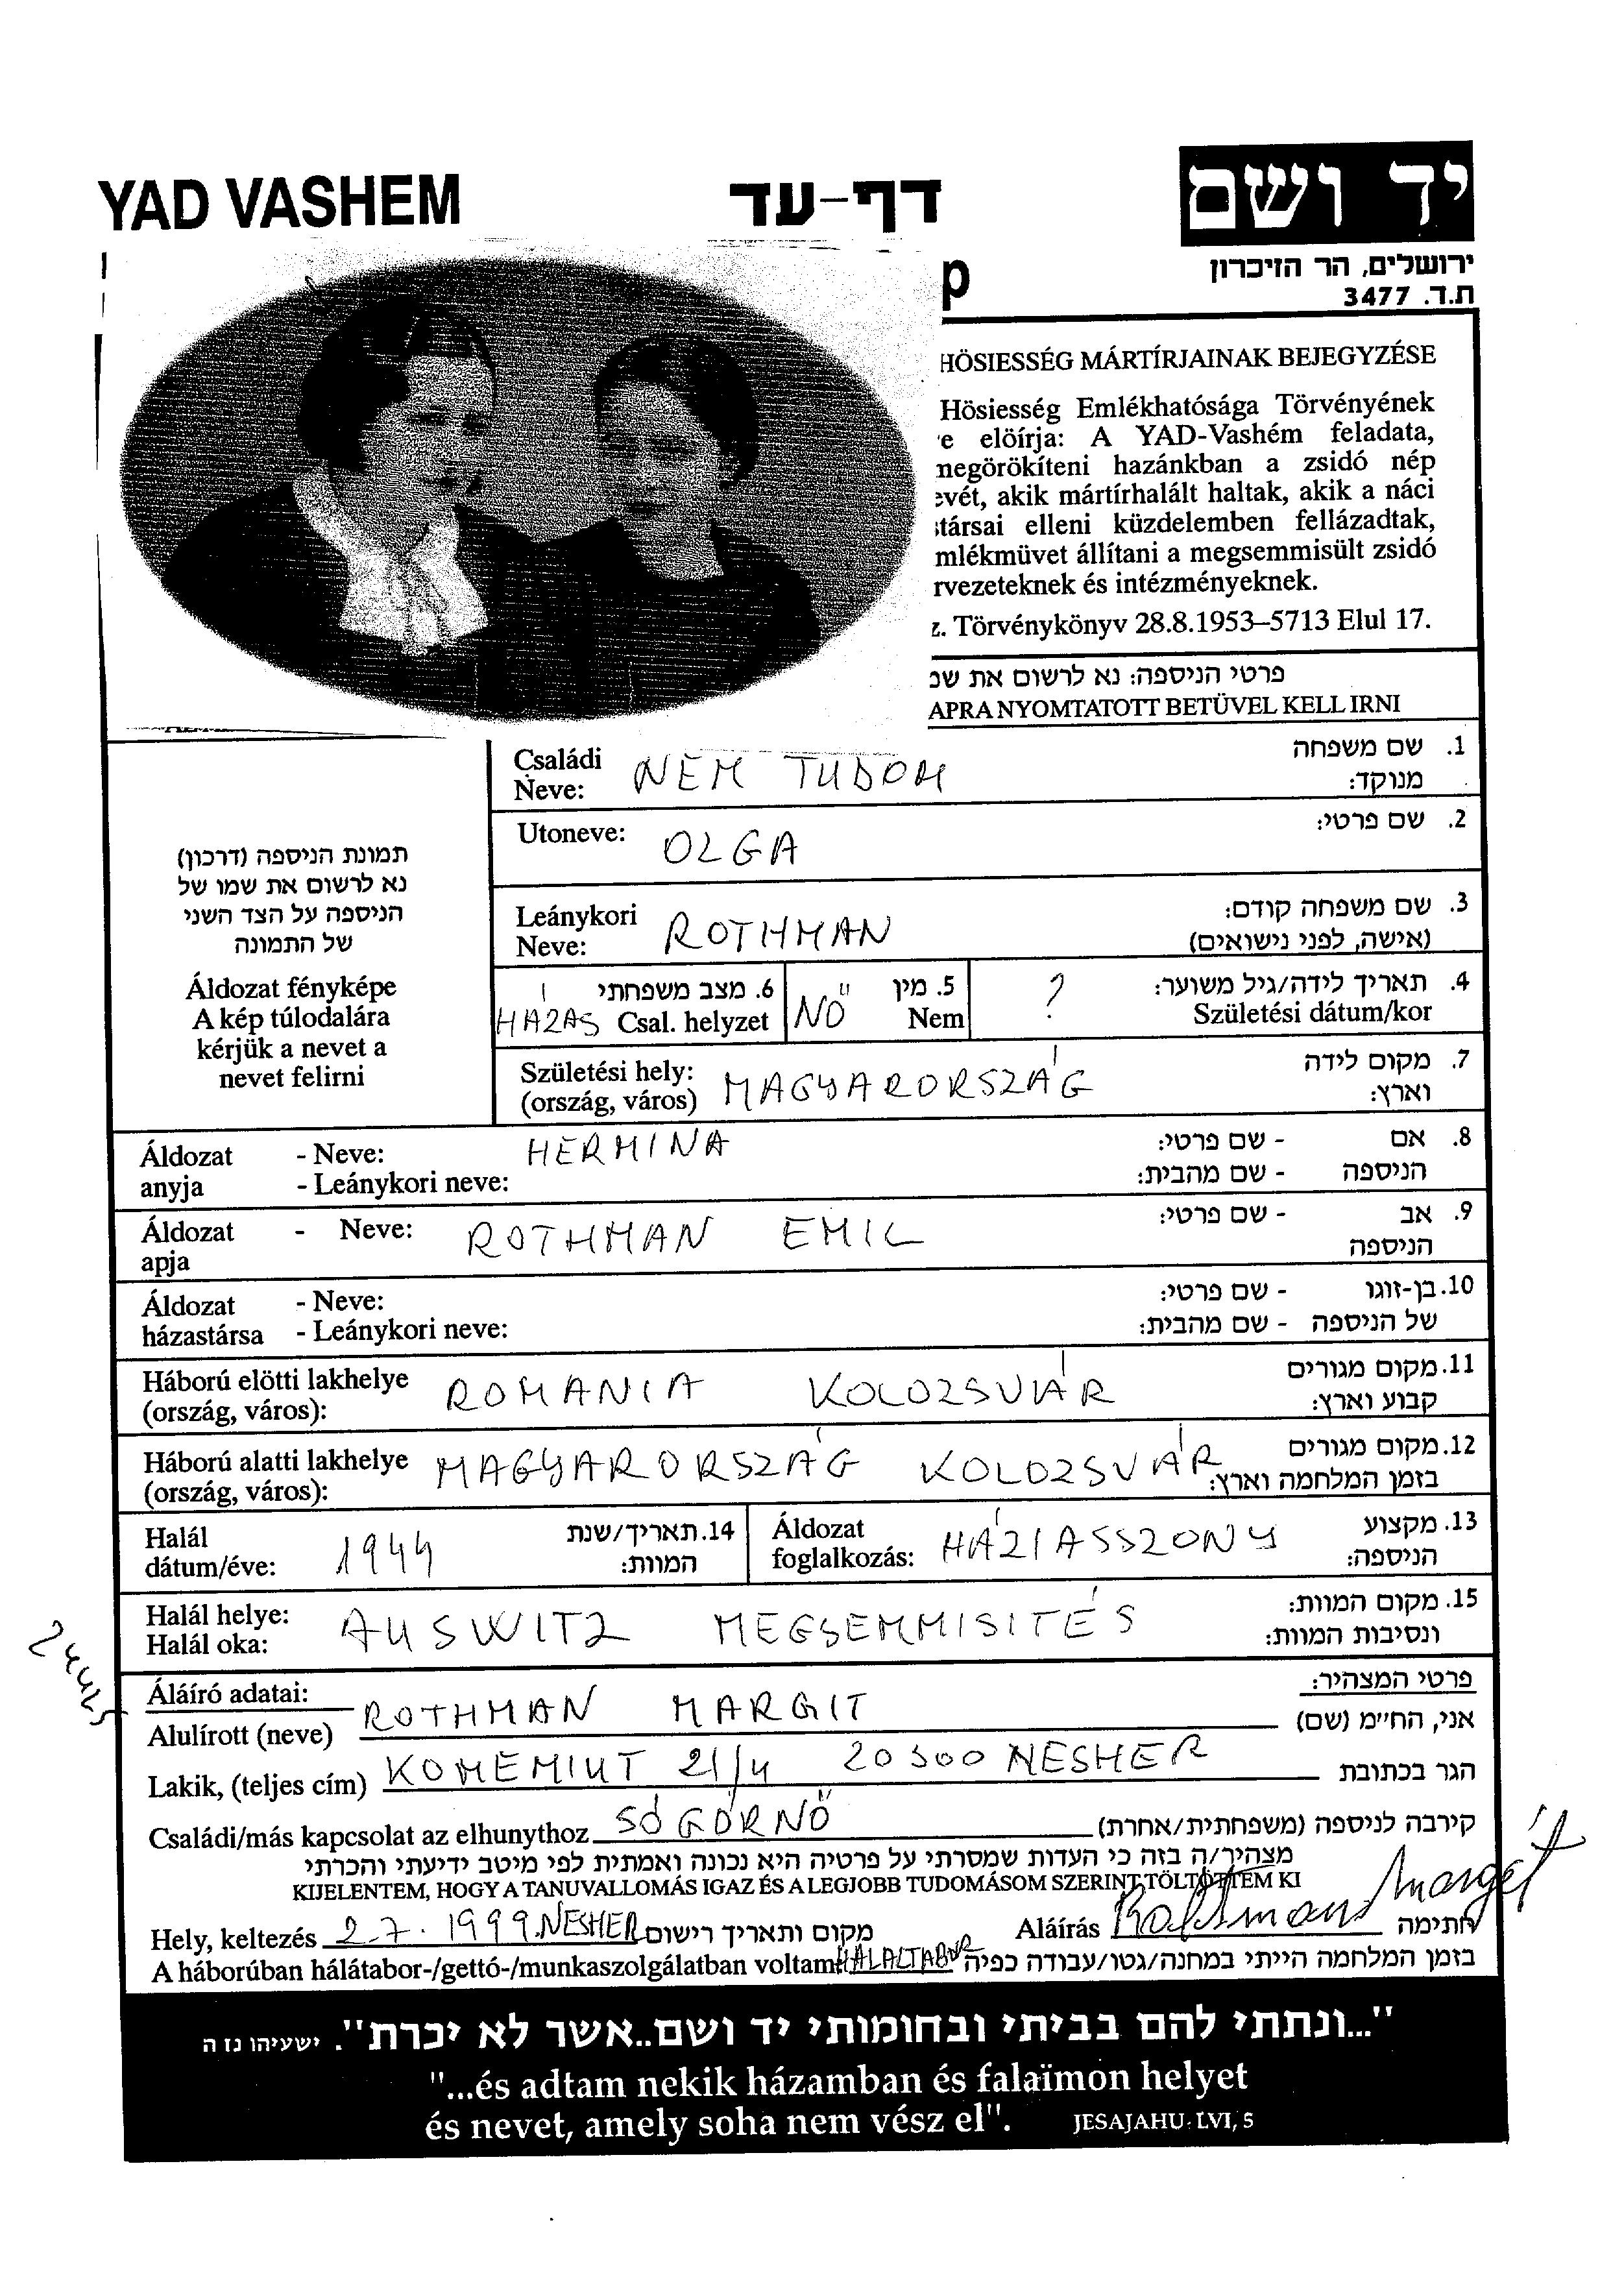 YAD VASHEM
דף-עד
יד ושם
ירושלים, הר הזיכרון
ת.ד. 3477
HÖSIESSÉG MÁRTÍRJAINAK BEJEGYZÉSE
Hösiesség Emlékhatósága Törvényének
e elöírja: A YAD-Vashém feladata,
negörökíteni hazánkban a zsidó nép
evét, akik mártírhalált haltak, akik a náci
társai elleni küzdelemben fellázadtak,
mlékmüvet állítani a megsemmisült zsidó
rvezeteknek és intézményeknek.
z. Törvénykönyv 28.8.1953–5713 Elul 17.
פרטי הניספה: נא לרשום את שמ
APRA NYOMTATOTT BETÜVEL KELL IRNI
Családi Neve: NEM TUDOM 1. שם משפחה מנוקד:
Utoneve: OLGA 2. שם פרטי:
Leánykori Neve: ROTHMAN 3. שם משפחה קודם: (אישה, לפני נישואים)
תמונת הניספה (דרכון)
נא לרשום את שמו של
הניספה על הצד השני
של התמונה
Áldozat fényképe
A kép túlodalára
kérjük a nevet a
nevet felirni
HÁZAS Csal. helyzet 6. מצב משפחתי NÖ Nem 5. מין ? 4. תאריך לידה/גיל משוער: Születési dátum/kor
Születési hely: (ország, város) MAGYARORSZÁG 7. מקום לידה וארץ:
Áldozat anyja - Neve: HERMINA 8. אם - שם פרטי:
- Leánykori neve: הניספה - שם מהבית:
Áldozat apja - Neve: ROTHMAN EMIL 9. אב - שם פרטי: הניספה
Áldozat - Neve: 10. בן-זוגו - שם פרטי:
házastársa - Leánykori neve: של הניספה - שם מהבית:
Háború elötti lakhelye (ország, város): ROMANIA KOLOZSVÁR 11. מקום מגורים קבוע וארץ:
Háború alatti lakhelye (ország, város): MAGYARORSZÁG KOLOZSVÁR 12. מקום מגורים בזמן המלחמה וארץ:
Halál dátum/éve: 1944 14. תאריך/שנת המוות: Áldozat foglalkozás: HÁZIASSZONY 13. מקצוע הניספה:
Halál helye: Halál oka: AUSWITZ MEGSEMMISITÉS 15. מקום המוות: ונסיבות המוות:
Áláíró adatai: פרטי המצהיר:
Alulírott (neve) ROTHMAN MARGIT אני, הח״מ (שם)
Lakik, (teljes cím) KOMEMIUT 21/4 20300 NESHER הגר בכתובת
Családi/más kapcsolat az elhunythoz SÓGÓRNÖ קירבה לניספה (משפחתית/אחרת)
מצהיר/ה בזה כי העדות שמסרתי על פרטיה היא נכונה ואמתית לפי מיטב ידיעתי והכרתי
KIJELENTEM, HOGY A TANUVALLOMÁS IGAZ ÉS A LEGJOBB TUDOMÁSOM SZERINT TÖLTÖTTEM KI
Hely, keltezés 2.7.1999. NESHER מקום ותאריך רישום Aláírás Rothman Margit חתימה
A háborúban hálátabor-/gettó-/munkaszolgálatban voltam HALÁLTABOR בזמן המלחמה הייתי במחנה/גטו/עבודה כפיה
"...ונתתי להם בביתי ובחומותי יד ושם..אשר לא יכרת". ישעיהו נז ה
"...és adtam nekik házamban és falaïmon helyet
és nevet, amely soha nem vész el". JESAJAHU LVI, 5